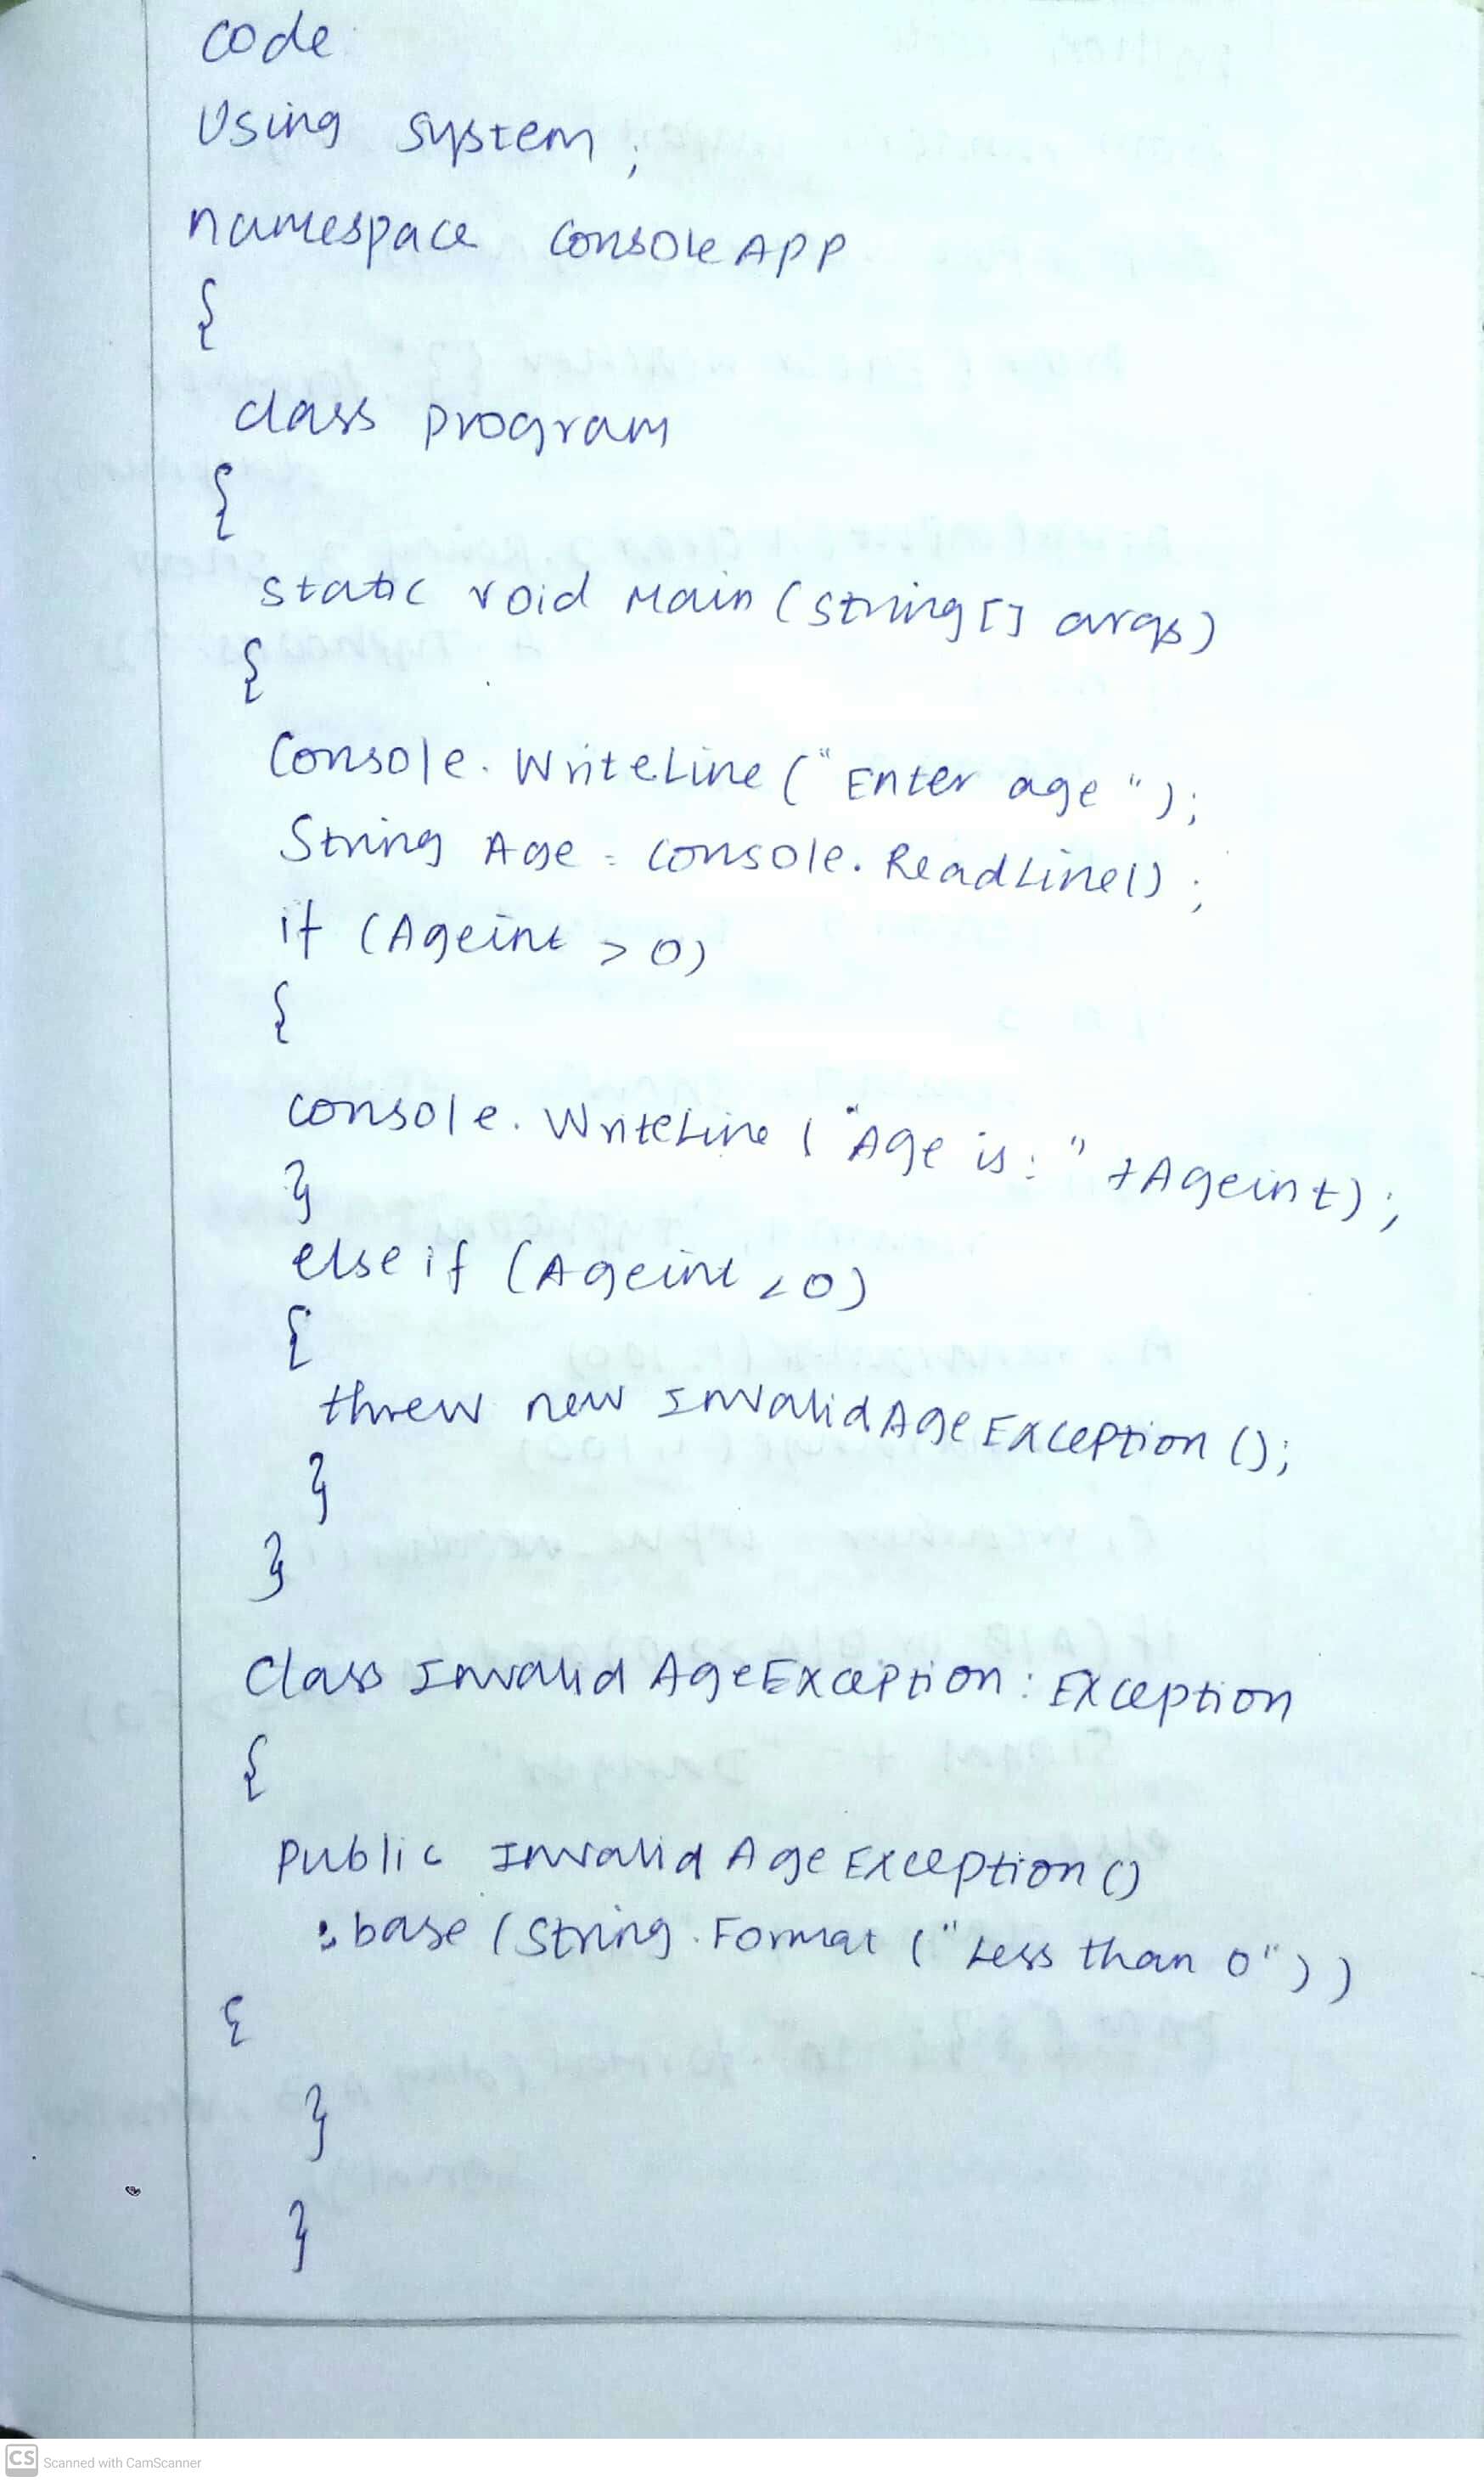 code
Using system ;
namespace console APP
{
class program
{
static void Main (string [] args)
{
Console. WriteLine ("Enter age");
String Age = console. ReadLine();
if (Ageint > 0)
{
console. WriteLine ("Age is: " +Ageint);
}
else if (Ageint <0)
{
threw new InvalidAgeException ();
}
}
Class Invalid AgeException : Exception
{
Public Invalid Age Exception ()
: base (String. Format ("Less than 0"))
{
}
}
CS Scanned with CamScanner